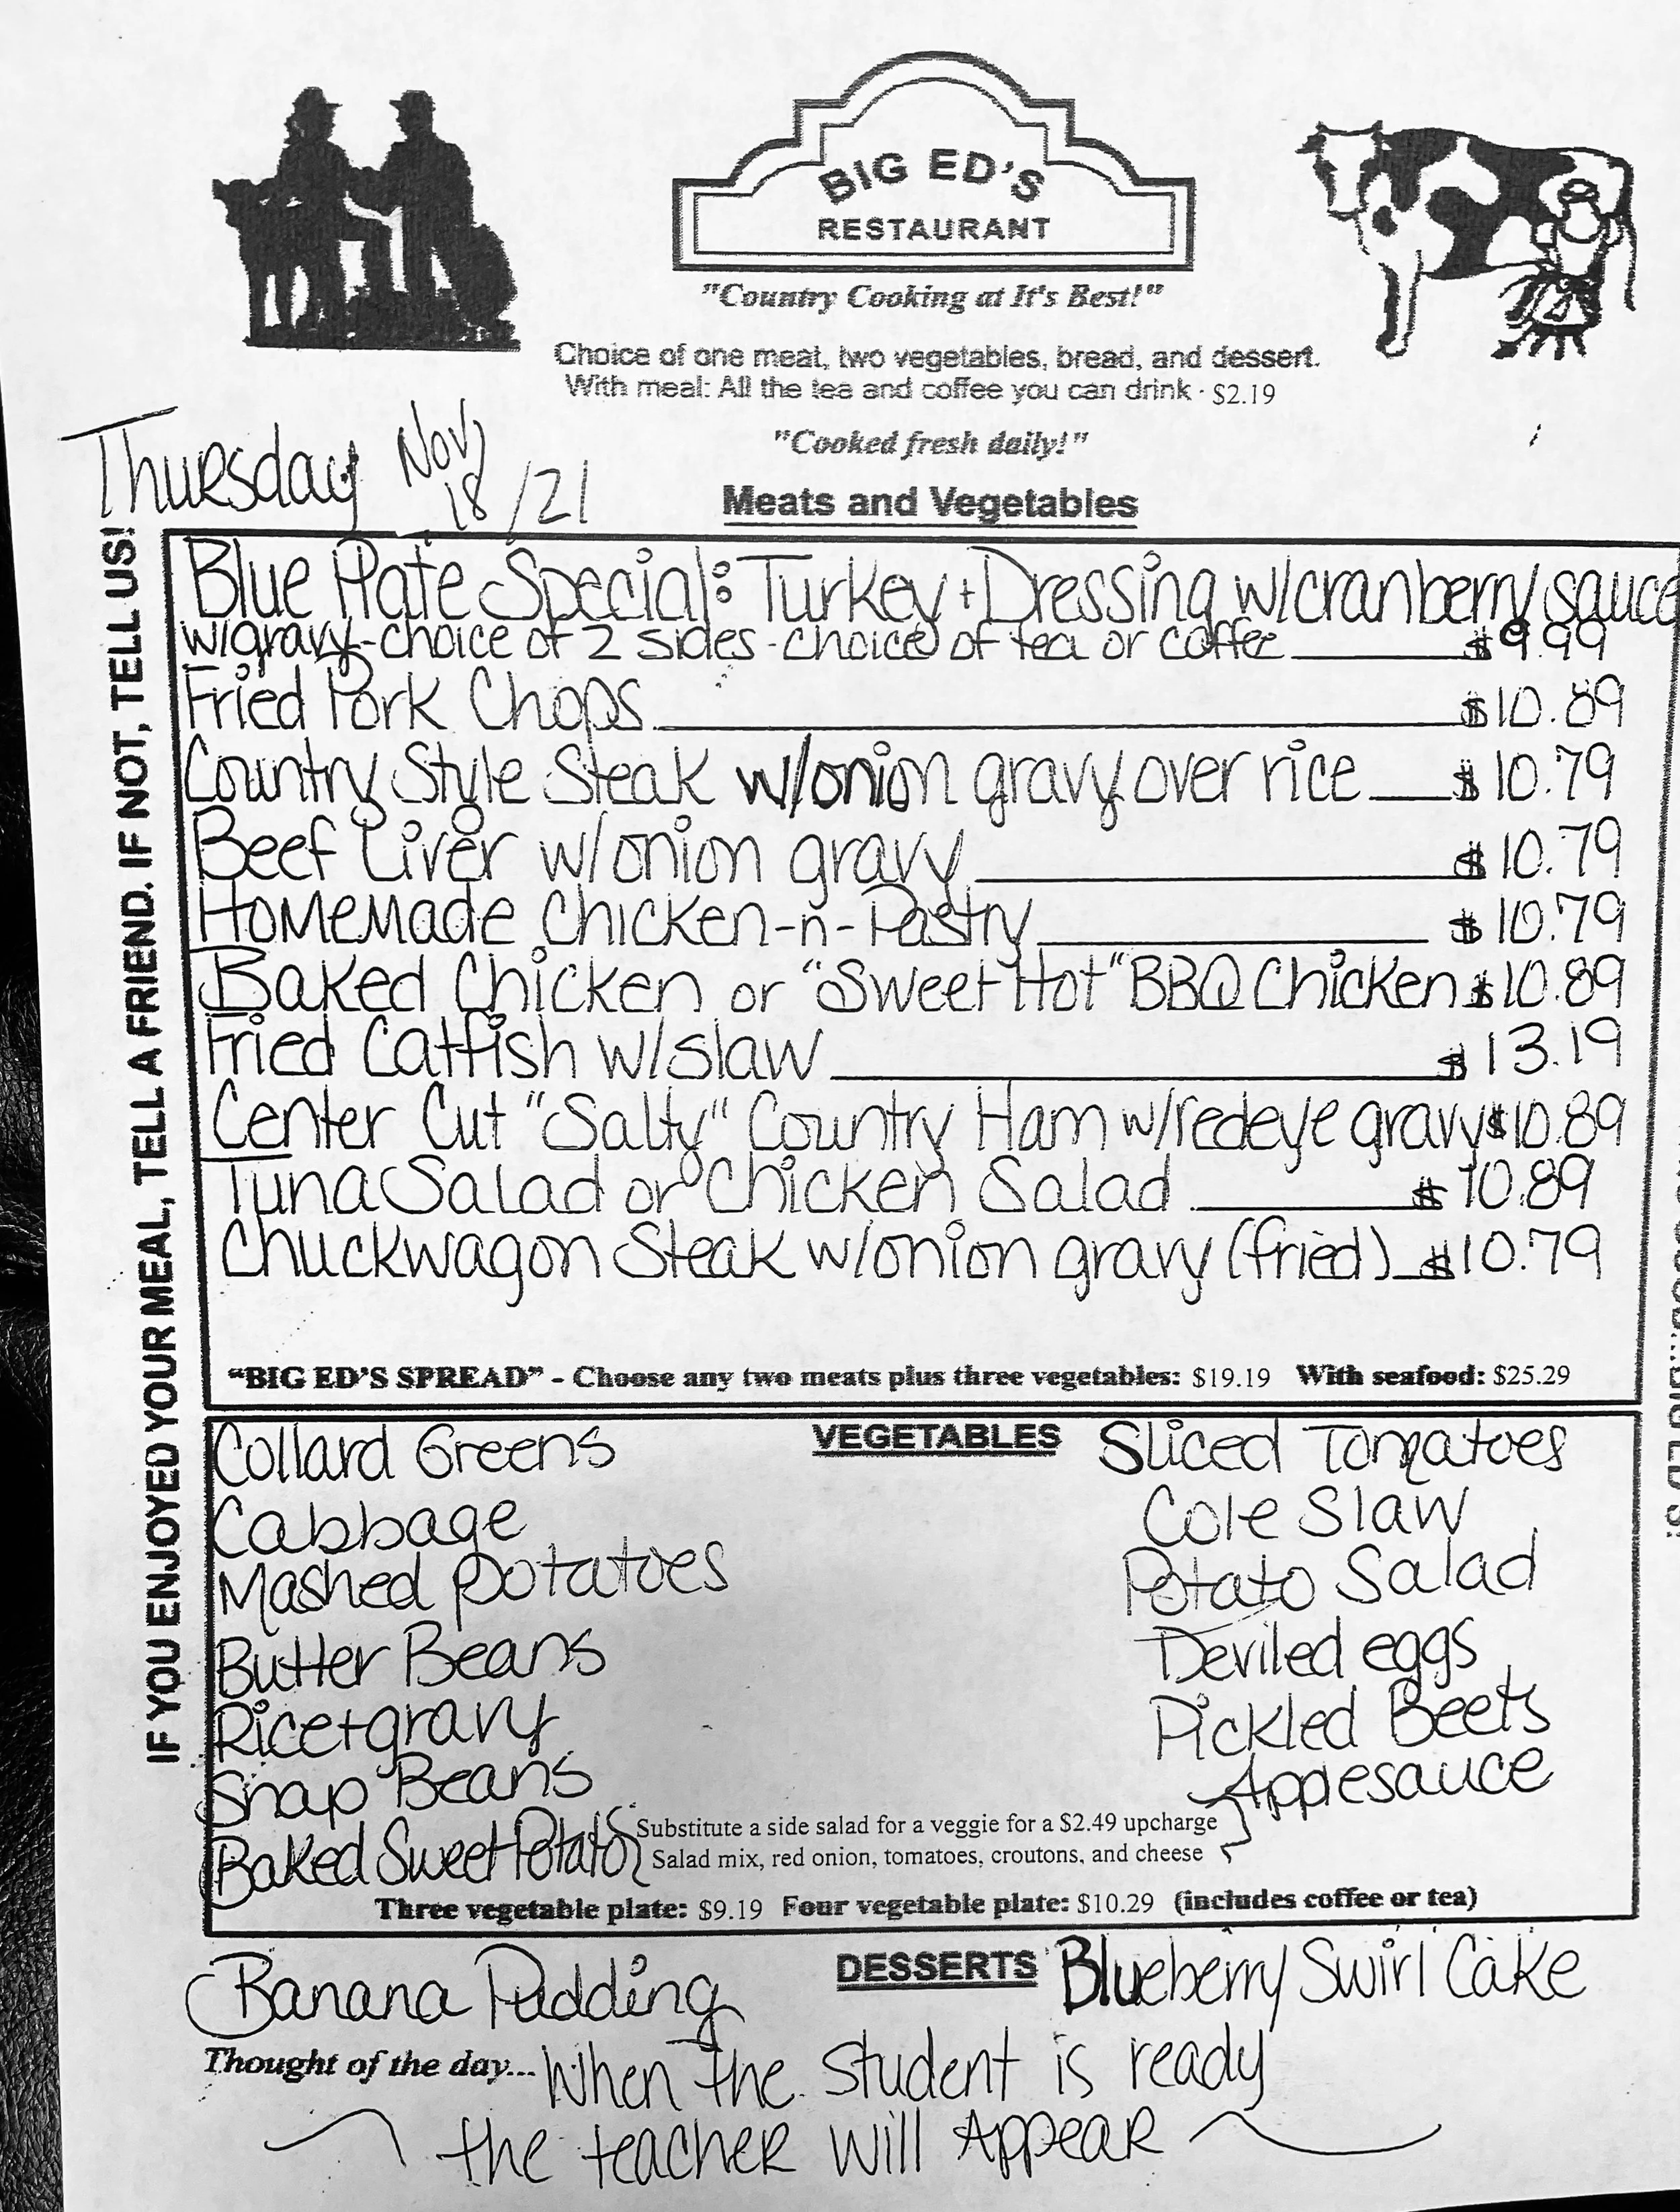 BIG ED'S
RESTAURANT
"Country Cooking at It's Best!"
Choice of one meat, two vegetables, bread, and dessert.
With meal: All the tea and coffee you can drink - $2.19
"Cooked fresh daily!"
Thursday Nov 18/21
Meats and Vegetables
IF YOU ENJOYED YOUR MEAL, TELL A FRIEND. IF NOT, TELL US!
Blue Plate Special: Turkey + Dressing w/cranberry sauce
w/gravy - choice of 2 sides - choice of tea or coffee $9.99
Fried Pork Chops $10.89
Country Style Steak w/onion gravy over rice $10.79
Beef Liver w/onion gravy $10.79
Homemade Chicken-n-Pastry $10.79
Baked Chicken or "Sweet Hot" BBQ Chicken $10.89
Fried Catfish w/slaw $13.19
Center Cut "Salty" Country Ham w/redeye gravy $10.89
Tuna Salad or Chicken Salad $10.89
Chuckwagon Steak w/onion gravy (fried) $10.79
"BIG ED'S SPREAD" - Choose any two meats plus three vegetables: $19.19 With seafood: $25.29
VEGETABLES
Collard Greens
Cabbage
Mashed Potatoes
Butter Beans
Rice + gravy
Snap Beans
Baked Sweet Potato
Sliced Tomatoes
Cole Slaw
Potato Salad
Deviled eggs
Pickled Beets
Applesauce
Substitute a side salad for a veggie for a $2.49 upcharge
Salad mix, red onion, tomatoes, croutons, and cheese
Three vegetable plate: $9.19 Four vegetable plate: $10.29 (includes coffee or tea)
DESSERTS
Banana Pudding
Blueberry Swirl Cake
Thought of the day... When the student is ready
the teacher will Appear